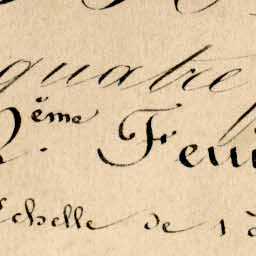 quatre
2ème Feui
Echelle de 1 à